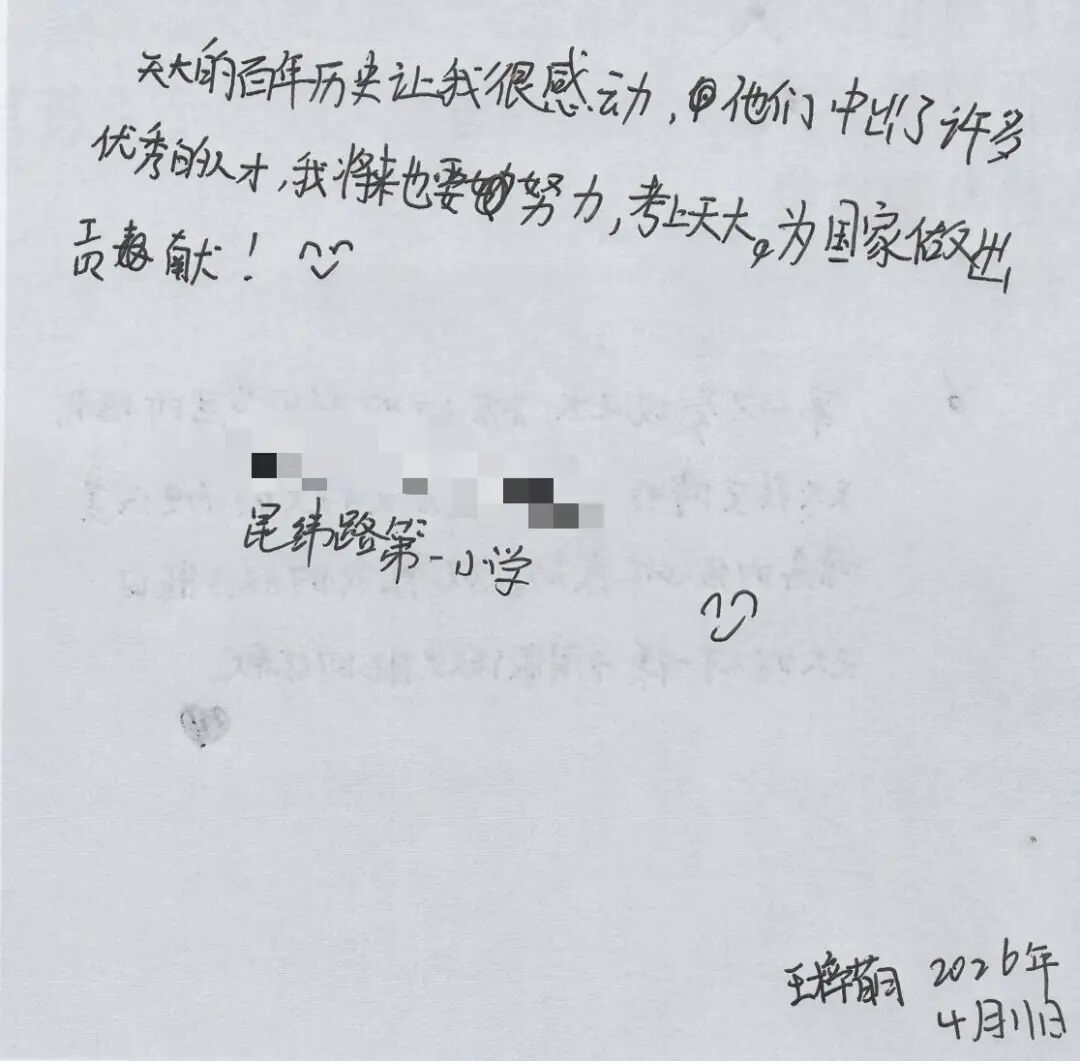 天大的百年历史让我很感动，他们中出了许多
优秀的人才，我将来也要努力，考上天大。为国家做出
贡献！
昆纬路第一小学
王梓萌 2026年
4月11日